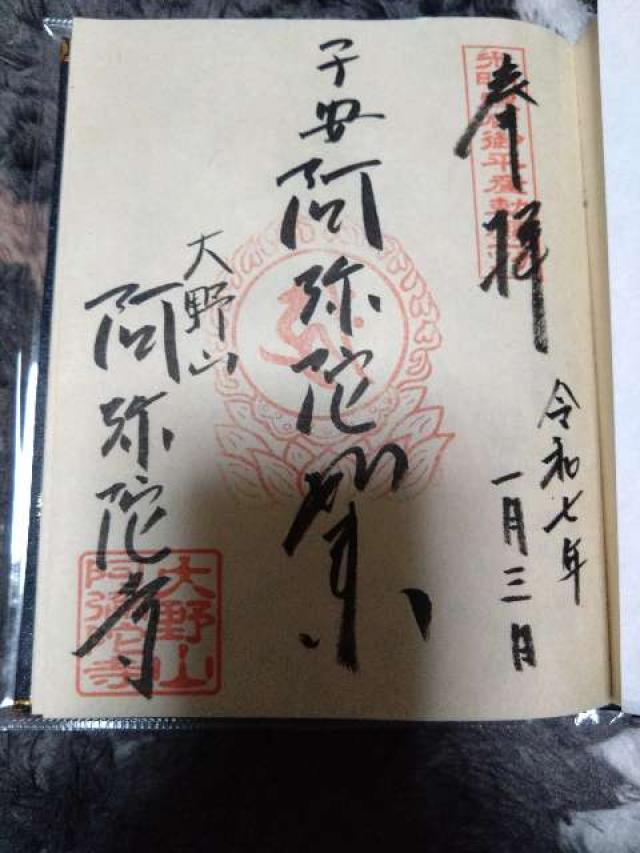 奉拝
光明 御平産勅
令和七年
一月三日
子安阿弥陀如来
大野山
阿弥陀寺
大野山
阿弥陀寺